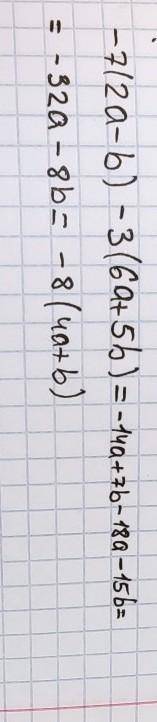 -7(2a-b) - 3(6a+5b) = -14a+7b-18a-15b=
= -32a - 8b = -8(4a+b)